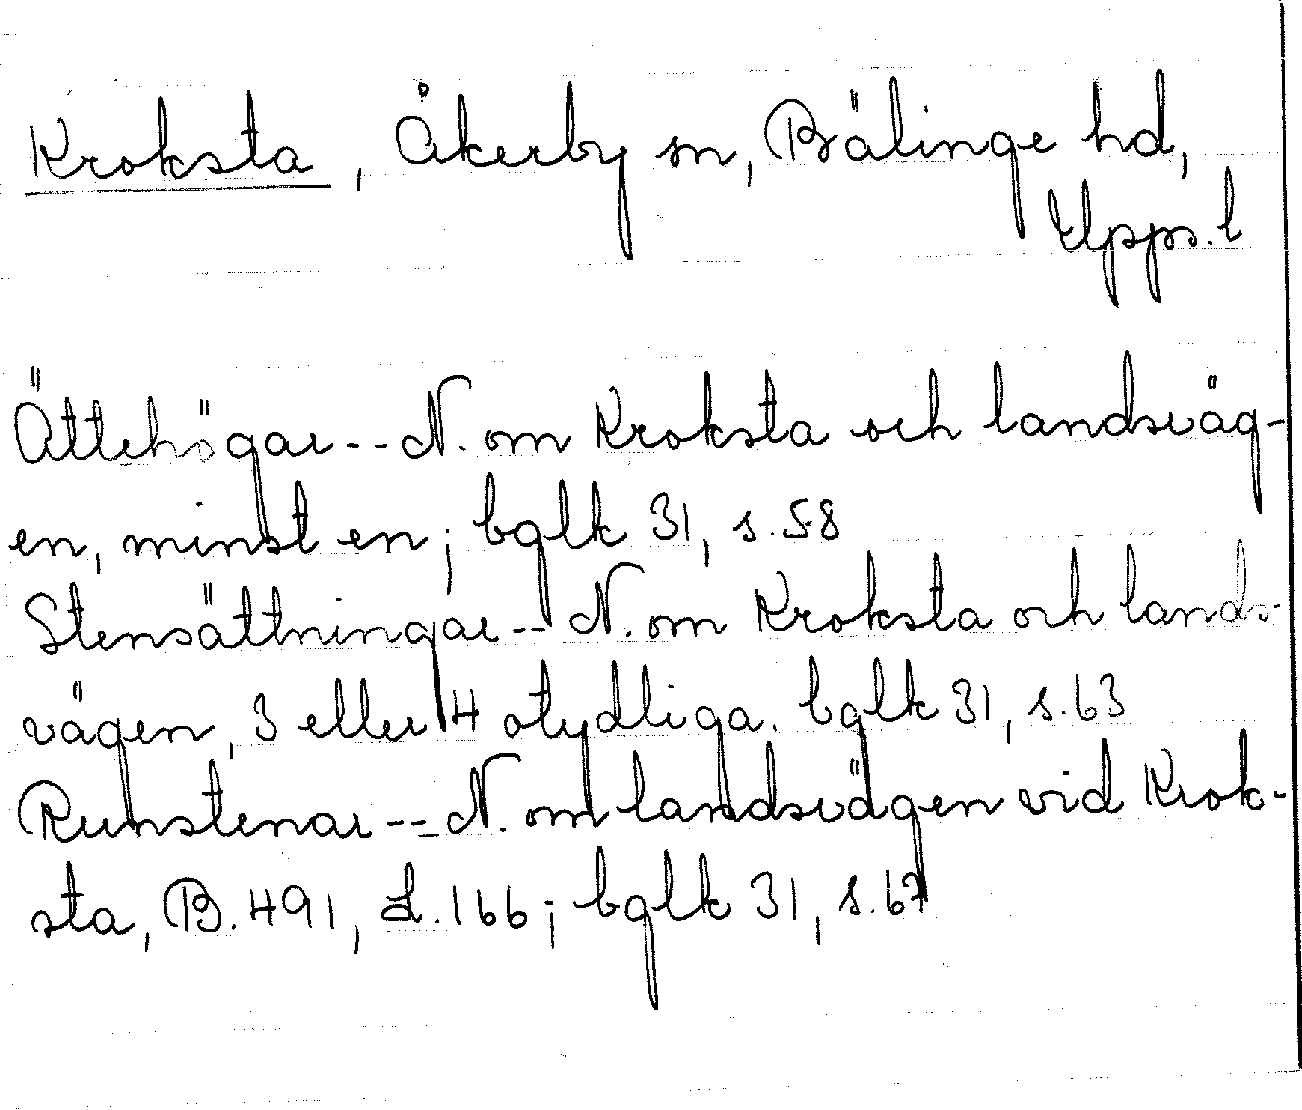 Kroksta, Åkerby sn, Bälinge hd,
Upps. l
Ättehögar -- N. om Kroksta och landsväg-
en, minst en; bglk 31, s. 58
Stensättningar -- N. om Kroksta och lands-
vägen, 3 eller 4 otydliga. bglk 31, s. 63
Runstenar -- N. om landsvägen vid Krok-
sta, B. 491, L. 166; bglk 31, s. 67